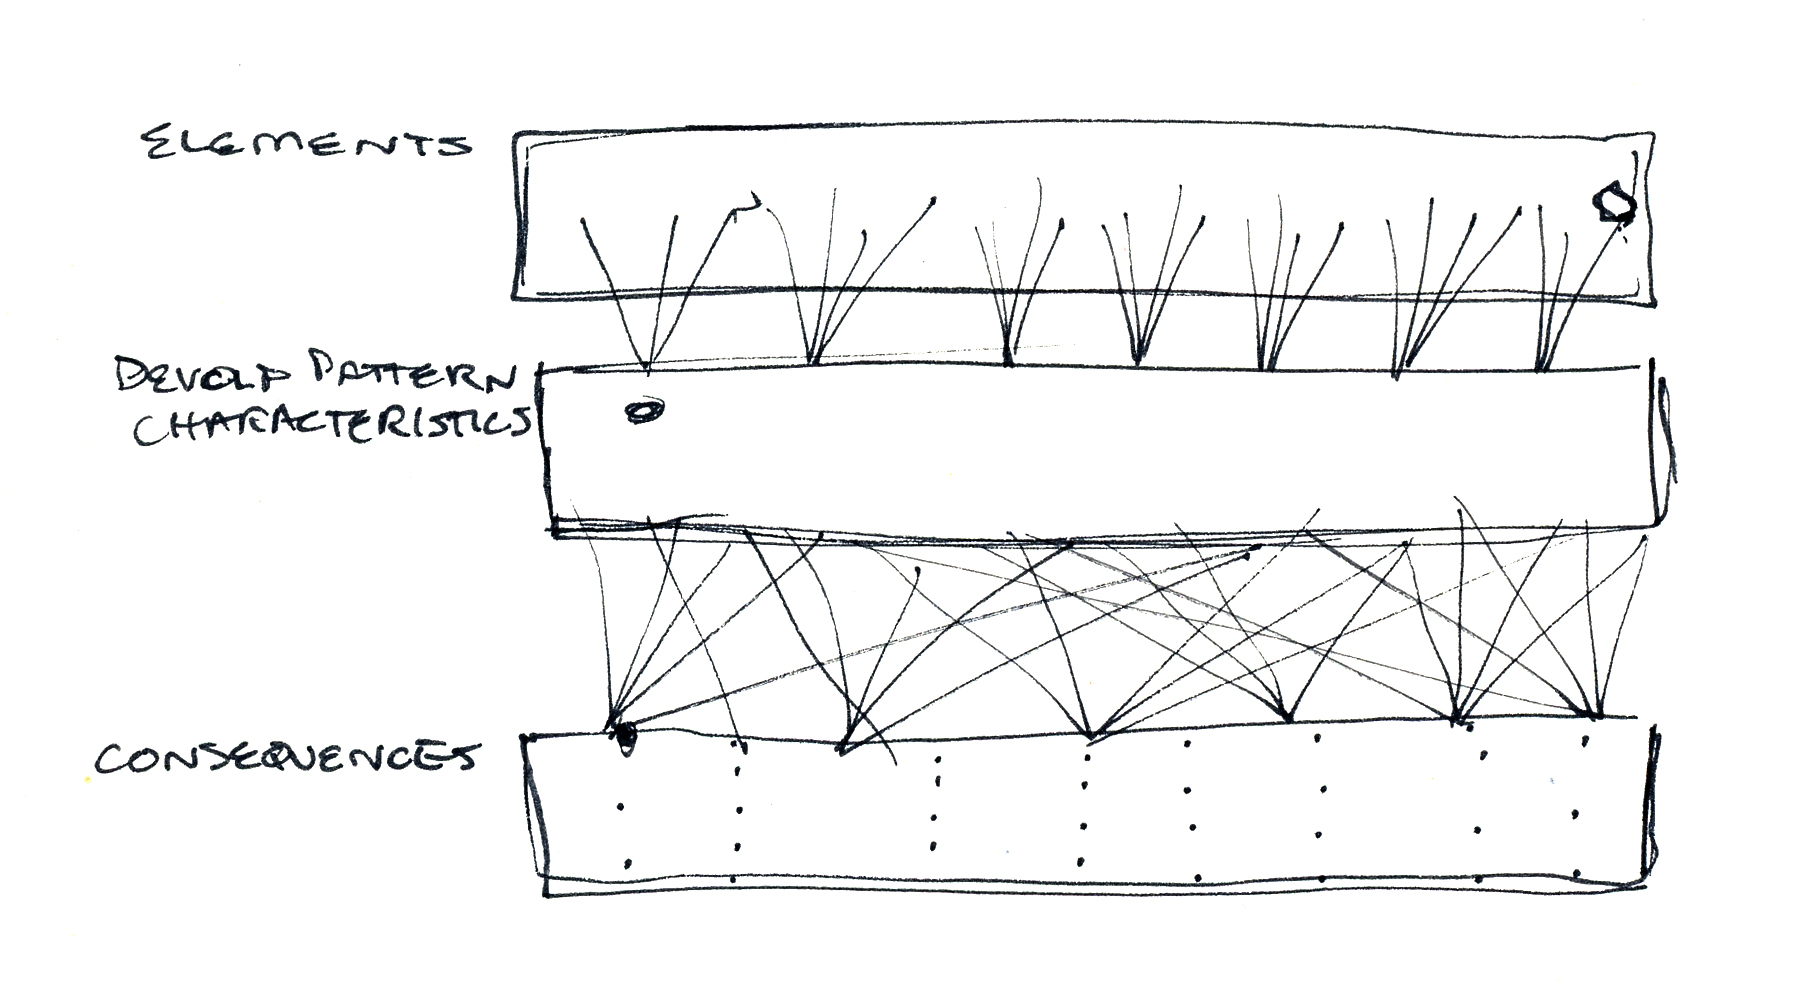 ELEMENTS
DEVOLP PATTERN
CHARACTERISTICS
CONSEQUENCES